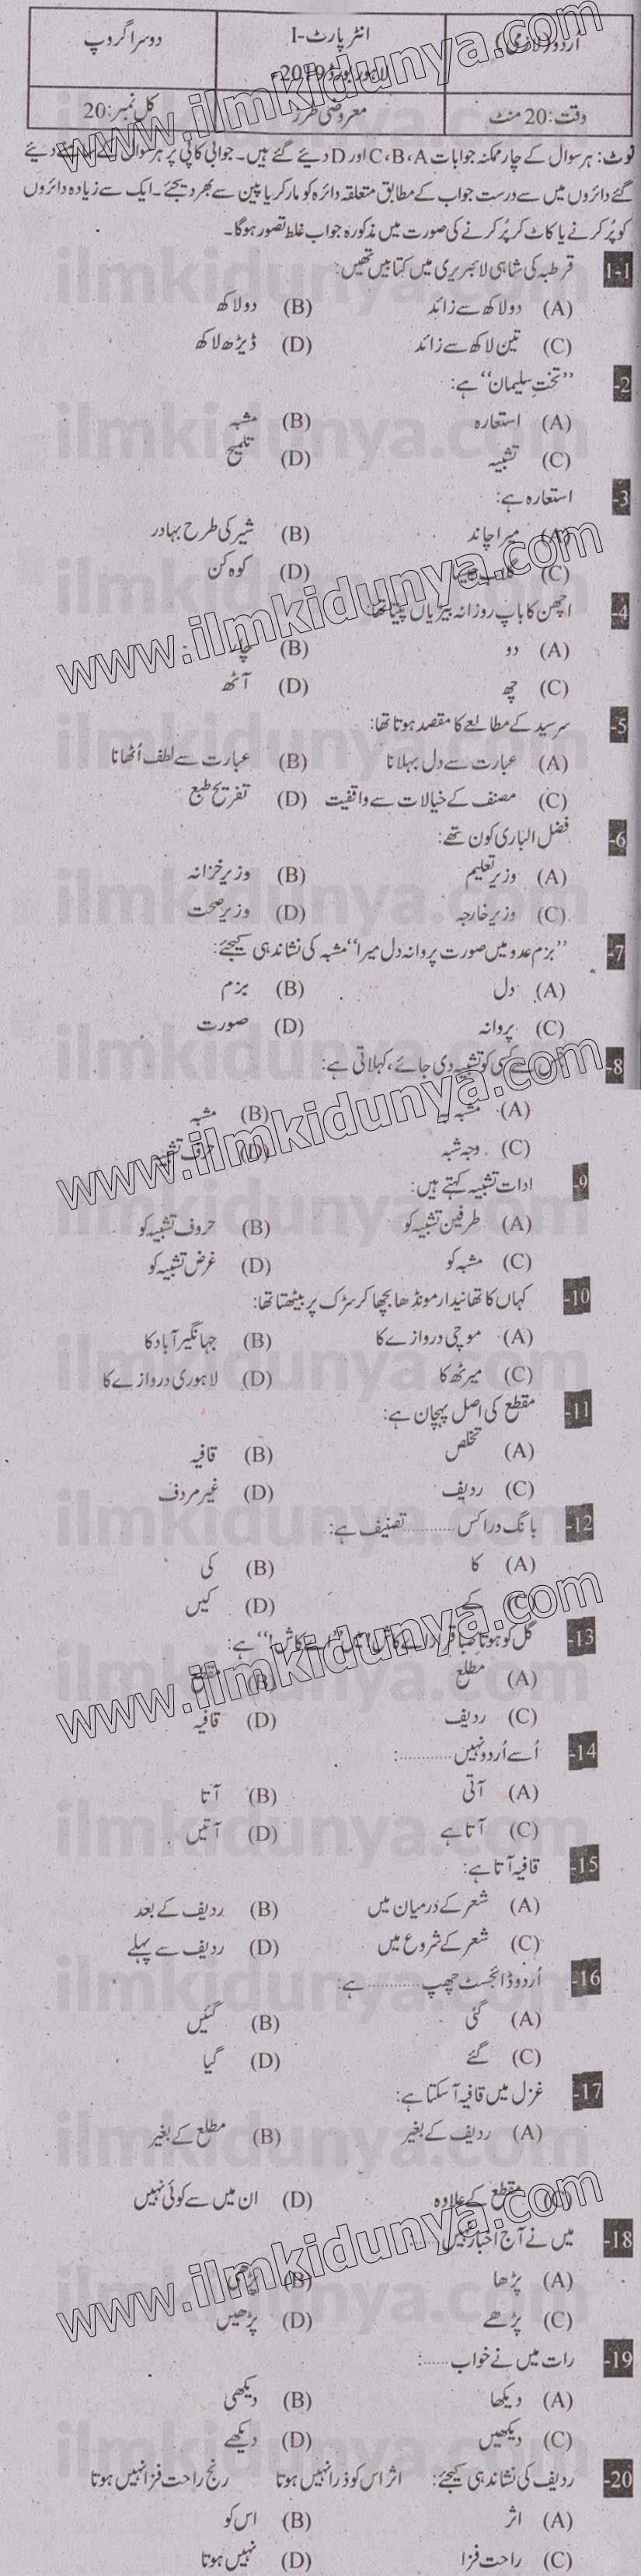 اُردو(لازمی) انٹر پارٹ-I دوسرا گروپ
لاہور بورڈ 2019ء
وقت: 20 منٹ معروضی طرز کل نمبر: 20
نوٹ: ہر سوال کے چار ممکنہ جوابات C،B،A اور D دیئے گئے ہیں۔ جوابی کاپی پر ہر سوال کے سامنے دیئے
گئے دائروں میں سے درست جواب کے مطابق متعلقہ دائرہ کو مارکر یا پین سے بھر دیجئے۔ ایک سے زیادہ دائروں
کو پُر کرنے یا کاٹ کر پُر کرنے کی صورت میں مذکورہ جواب غلط تصور ہوگا۔
1-1 قرطبہ کی شاہی لائبریری میں کتابیں تھیں:
(A) دو لاکھ سے زائد (B) دو لاکھ
(C) تین لاکھ سے زائد (D) ڈیڑھ لاکھ
-2 ’’تختِ سلیمان‘‘ ہے:
(A) استعارہ (B) مشبہ
(C) تشبیہ (D) تلمیح
-3 استعارہ ہے:
(A) میرا چاند (B) شیر کی طرح بہادر
(C) گلاب جیسا (D) کوہ کن
-4 اچھن کا باپ روزانہ بیڑیاں پیتا تھا:
(A) دو (B) چار
(C) چھ (D) آٹھ
-5 سرسید کے مطالعے کا مقصد ہوتا تھا:
(A) عبارت سے دل بہلانا (B) عبارت سے لطف اُٹھانا
(C) مصنف کے خیالات سے واقفیت (D) تفریح طبع
-6 فضل الباری کون تھے:
(A) وزیرِ تعلیم (B) وزیرِ خزانہ
(C) وزیرِ خارجہ (D) وزیرِ صحت
-7 ’’بزمِ عدو میں صورت پروانہ دل میرا‘‘ مشبہ کی نشاندہی کیجئے:
(A) دل (B) بزم
(C) پروانہ (D) صورت
-8 جس سے کسی کو تشبیہ دی جائے، کہلاتی ہے:
(A) مشبہ بہ (B) مشبہ
(C) وجہ شبہ (D) حرف تشبیہ
-9 ادات تشبیہ کہتے ہیں:
(A) طرفین تشبیہ کو (B) حروف تشبیہ کو
(C) مشبہ کو (D) غرض تشبیہ کو
-10 کہاں کا تھانیدار مونڈھا بچھا کر سڑک پر بیٹھتا تھا:
(A) موچی دروازے کا (B) جہانگیر آباد کا
(C) میرٹھ کا (D) لاہوری دروازے کا
-11 مقطع کی اصل پہچان ہے:
(A) تخلص (B) قافیہ
(C) ردیف (D) غیر مردف
-12 بانگ درا کس ............ تصنیف ہے:
(A) کا (B) کی
(C) کے (D) کیں
-13 گل کو ہوتا صبا قرار اے کاش ‘‘ ہے:
(A) مطلع (B) مقطع
(C) ردیف (D) قافیہ
-14 اُسے اُردو نہیں ............:
(A) آتی (B) آتا
(C) آتا ہے (D) آتیں
-15 قافیہ آتا ہے:
(A) شعر کے درمیان میں (B) ردیف کے بعد
(C) شعر کے شروع میں (D) ردیف سے پہلے
-16 اُردو ڈائجسٹ چھپ ............ ہے:
(A) گئی (B) گئیں
(C) گئے (D) گیا
-17 غزل میں قافیہ آ سکتا ہے:
(A) ردیف کے بغیر (B) مطلع کے بغیر
(C) مقطع کے علاوہ (D) ان میں سے کوئی نہیں
-18 میں نے آج اخبار نہیں
(A) پڑھا (B) پڑھی
(C) پڑھے (D) پڑھیں
-19 رات میں نے خواب ......:
(A) دیکھا (B) دیکھی
(C) دیکھیں (D) دیکھے
-20 ردیف کی نشاندہی کیجئے: اثر اس کو ذرا نہیں ہوتا رنج راحت فزا نہیں ہوتا
(A) اثر (B) اس کو
(C) راحت فزا (D) نہیں ہوتا
www.ilmkidunya.com